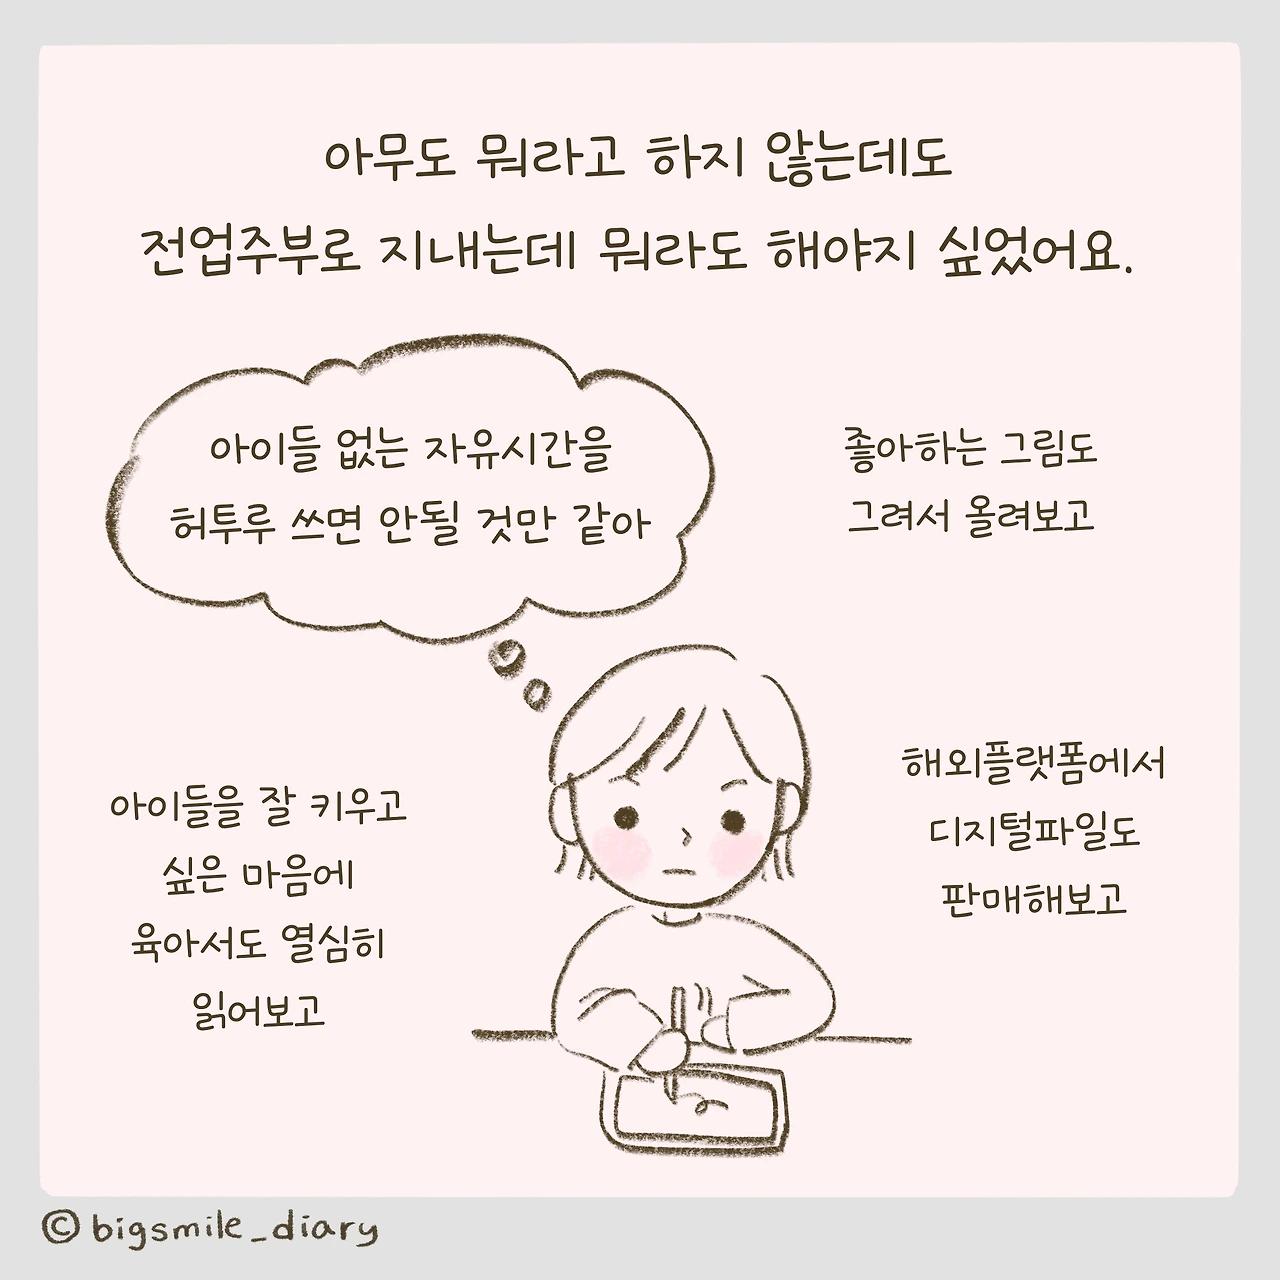 아무도 뭐라고 하지 않는데도
전업주부로 지내는데 뭐라도 해야지 싶었어요.
아이들 없는 자유시간을
허투루 쓰면 안될 것만 같아
좋아하는 그림도
그려서 올려보고
아이들을 잘 키우고
싶은 마음에
육아서도 열심히
읽어보고
해외플랫폼에서
디지털파일도
판매해보고
© bigsmile_diary